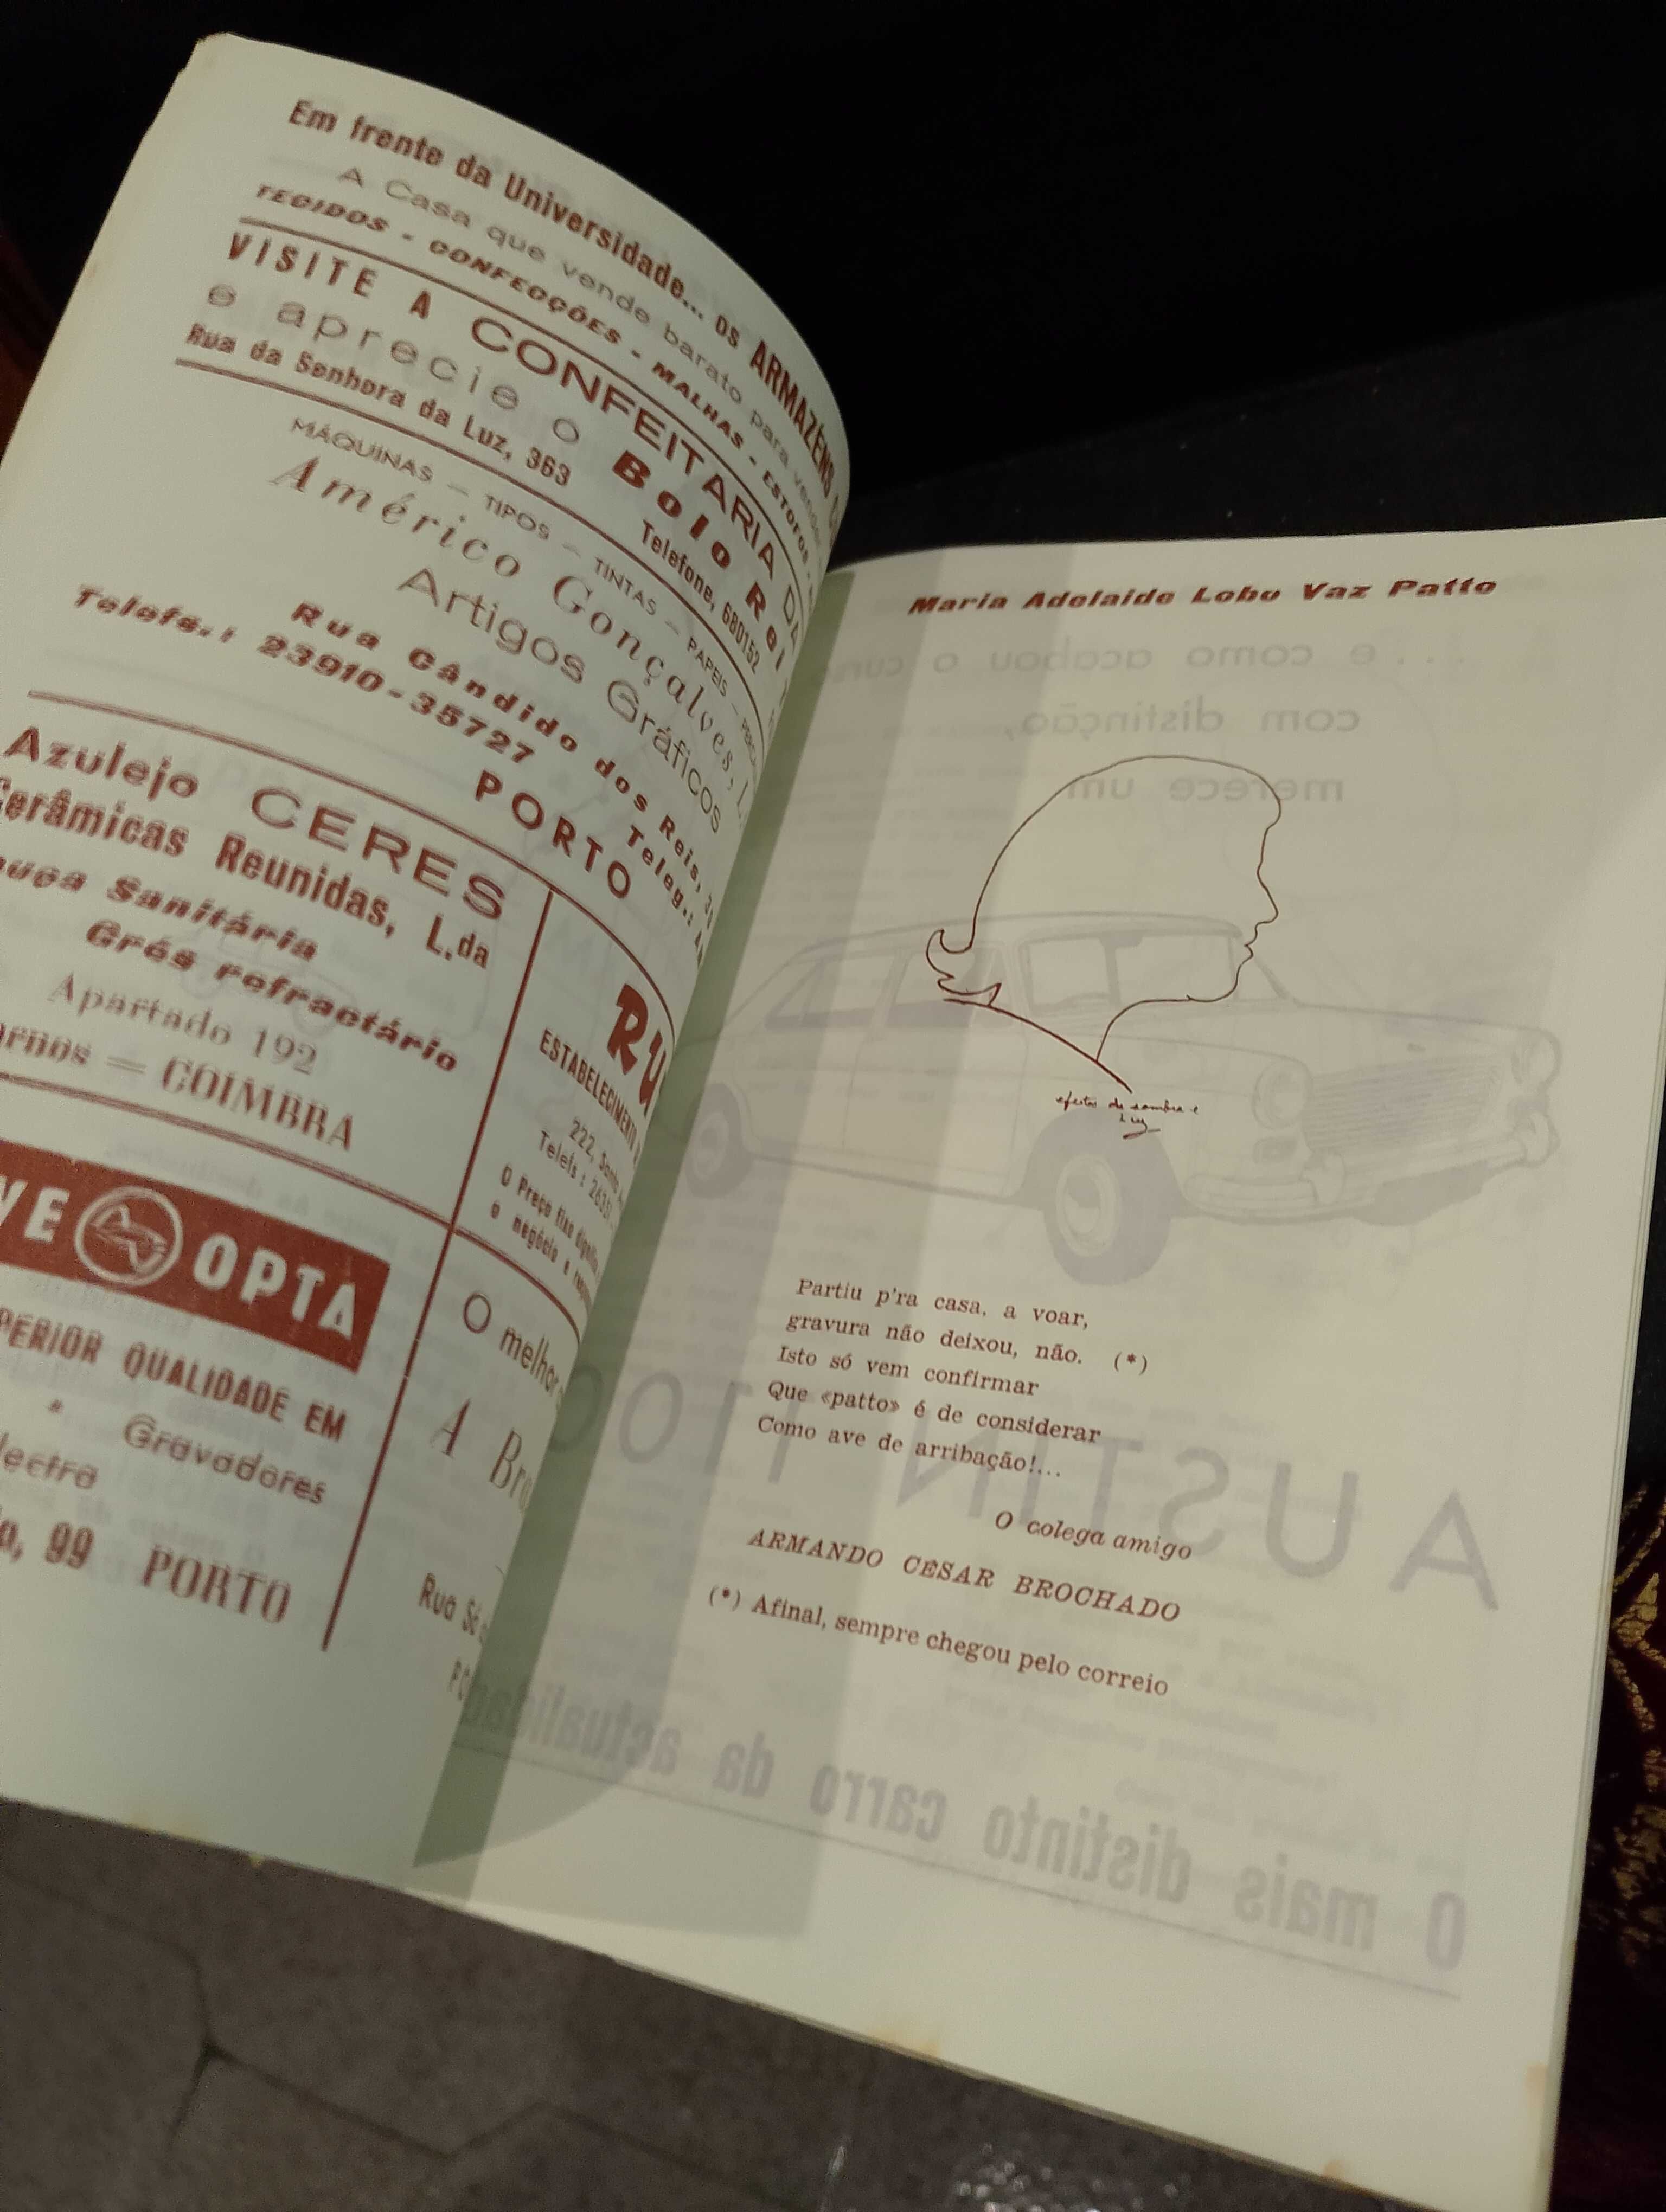 Em frente da Universidade... os ARMAZÉNS
A Casa que vende barato para vender
TECIDOS - CONFECÇÕES - MALHAS - ESTOFOS -
VISITE A CONFEITARIA DA
e aprecie o Bolo Rei
Rua da Senhora da Luz, 363 Telefone, 680152
MÁQUINAS — TIPOS — TINTAS — PAPEIS —
Américo Gonçalves,
Artigos Gráficos
Rua Cândido dos Reis,
Telefs.: 23910-35727 Teleg.:
PORTO
Azulejo CERES
Cerâmicas Reunidas, L.da
Sanitária
Grés refractário
Apartado 192
= COIMBRA
ESTABELECIMENTO
222,
Telefs:
O Preço fixo
o negócio e
OPTA
QUALIDADE EM
" Gravadores
99 PORTO
O melhor
A
Rua
Maria Adelaide Lobo Vaz Patto
... e como acabou o
com distinção,
merece um
efeitos de sombra e
luz
Partiu p'ra casa, a voar,
gravura não deixou, não. (*)
Isto só vem confirmar
Que «patto» é de considerar
Como ave de arribação!...
O colega amigo
ARMANDO CÉSAR BROCHADO
(*) Afinal, sempre chegou pelo correio
AUSTIN 1100
O mais distinto carro da actualidade